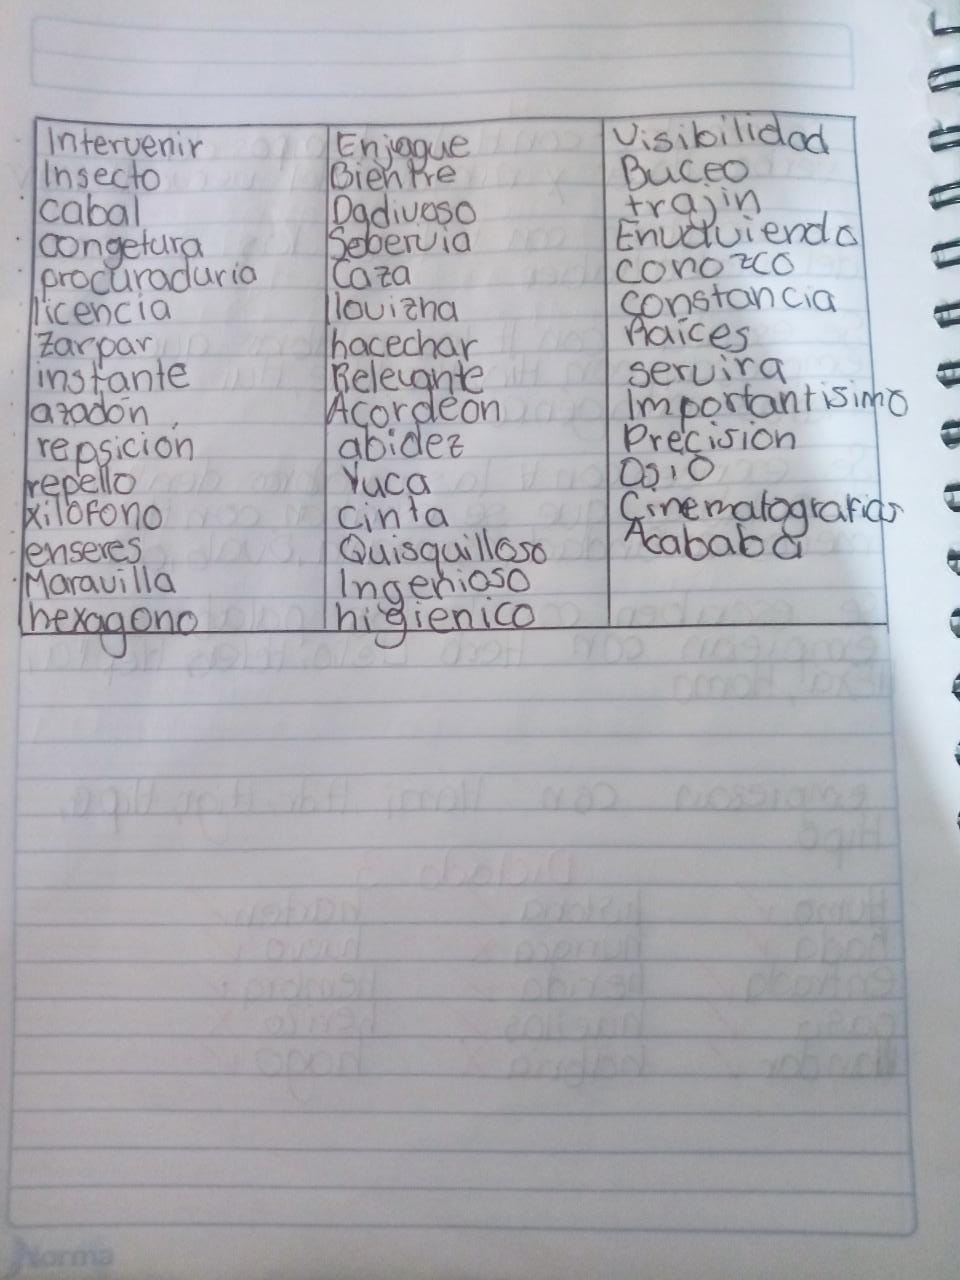 Intervenir
Insecto
cabal
congetura
procuraduria
licencia
zarpar
instante
azadón
repsicion
repello
xilofono
enseres
Maravilla
hexagono
Enjague
Bientre
Dadivoso
Sobervia
Caza
llovizna
hacechar
Relevante
Acordeon
abidez
Yuca
cinta
Quisquilloso
Ingenioso
higienico
Visibilidad
Buceo
trajin
Envuviendo
conozco
constancia
Raíces
servira
Importantisimo
Precision
Osio
Cinematografias
Acababa
Norma